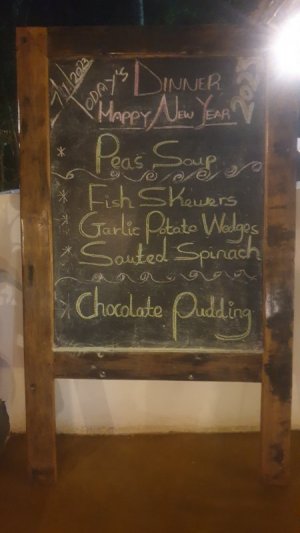 1/1/2023
Today's Dinner
Happy New Year 2023
* Peas Soup
* Fish Skewers
* Garlic Potato Wedges
* Sauted Spinach
* Chocolate Pudding